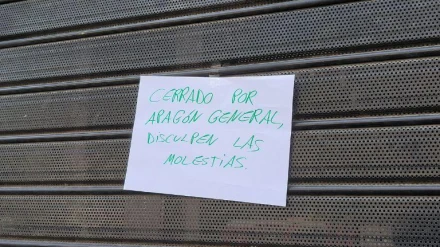 CERRADO POR
APAGÓN GENERAL,
DISCULPEN LAS
MOLESTIAS.